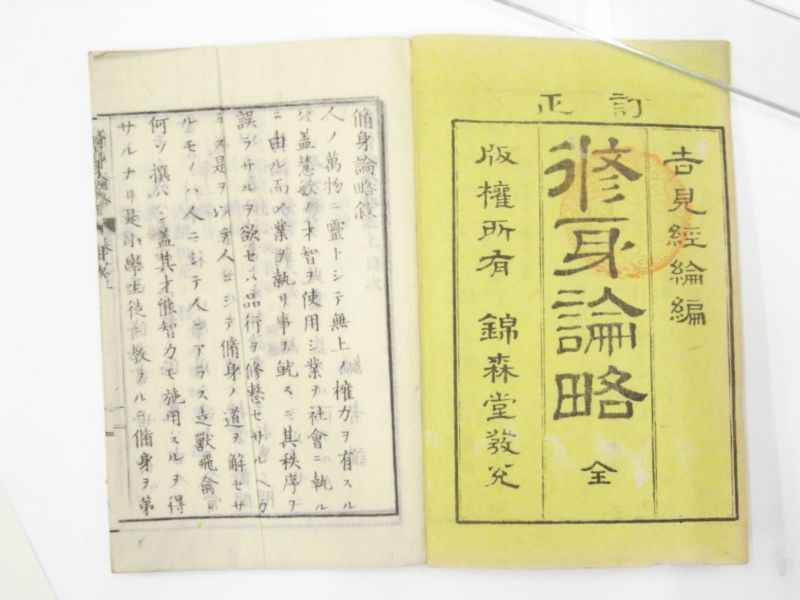 訂正
吉見經綸編
修身論略 全
版權所有 錦森堂發兌
脩身論略敘
人ノ萬物ニ靈トシテ無上ノ權力ヲ有スル
蓋慧敏ノ才智ヲ使用シ業ヲ社會ニ執ル
ニ由ル而メ業ヲ執リ事ヲ就スニ其秩序ヲ
誤ラサルヲ欲セス品行ヲ修整セサルヘカ
ラス是ヲ以テ人ニシテ脩身ノ道ヲ解セサ
ルモノハ人ニシテ人ニアラス走獸飛禽ニ
何ソ撰ハン蓋其才能智力モ施用スルヲ得
サルナリ是小學生徒ヲ教ヲルヲ脩身ヲ第